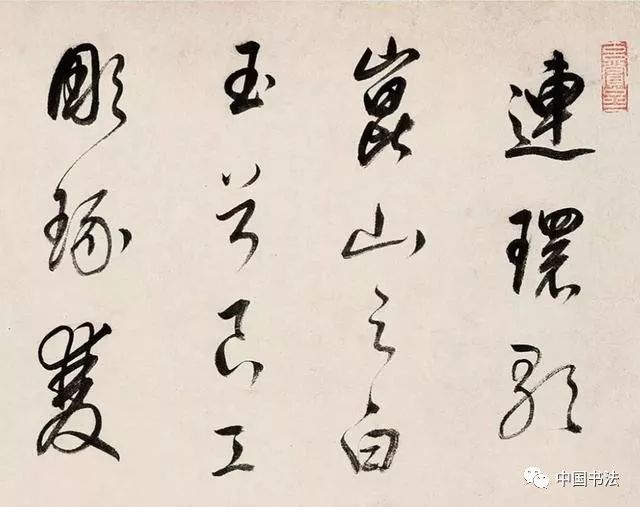 連環歌
崑山之白
玉兮良工
彫琢雙
中国书法